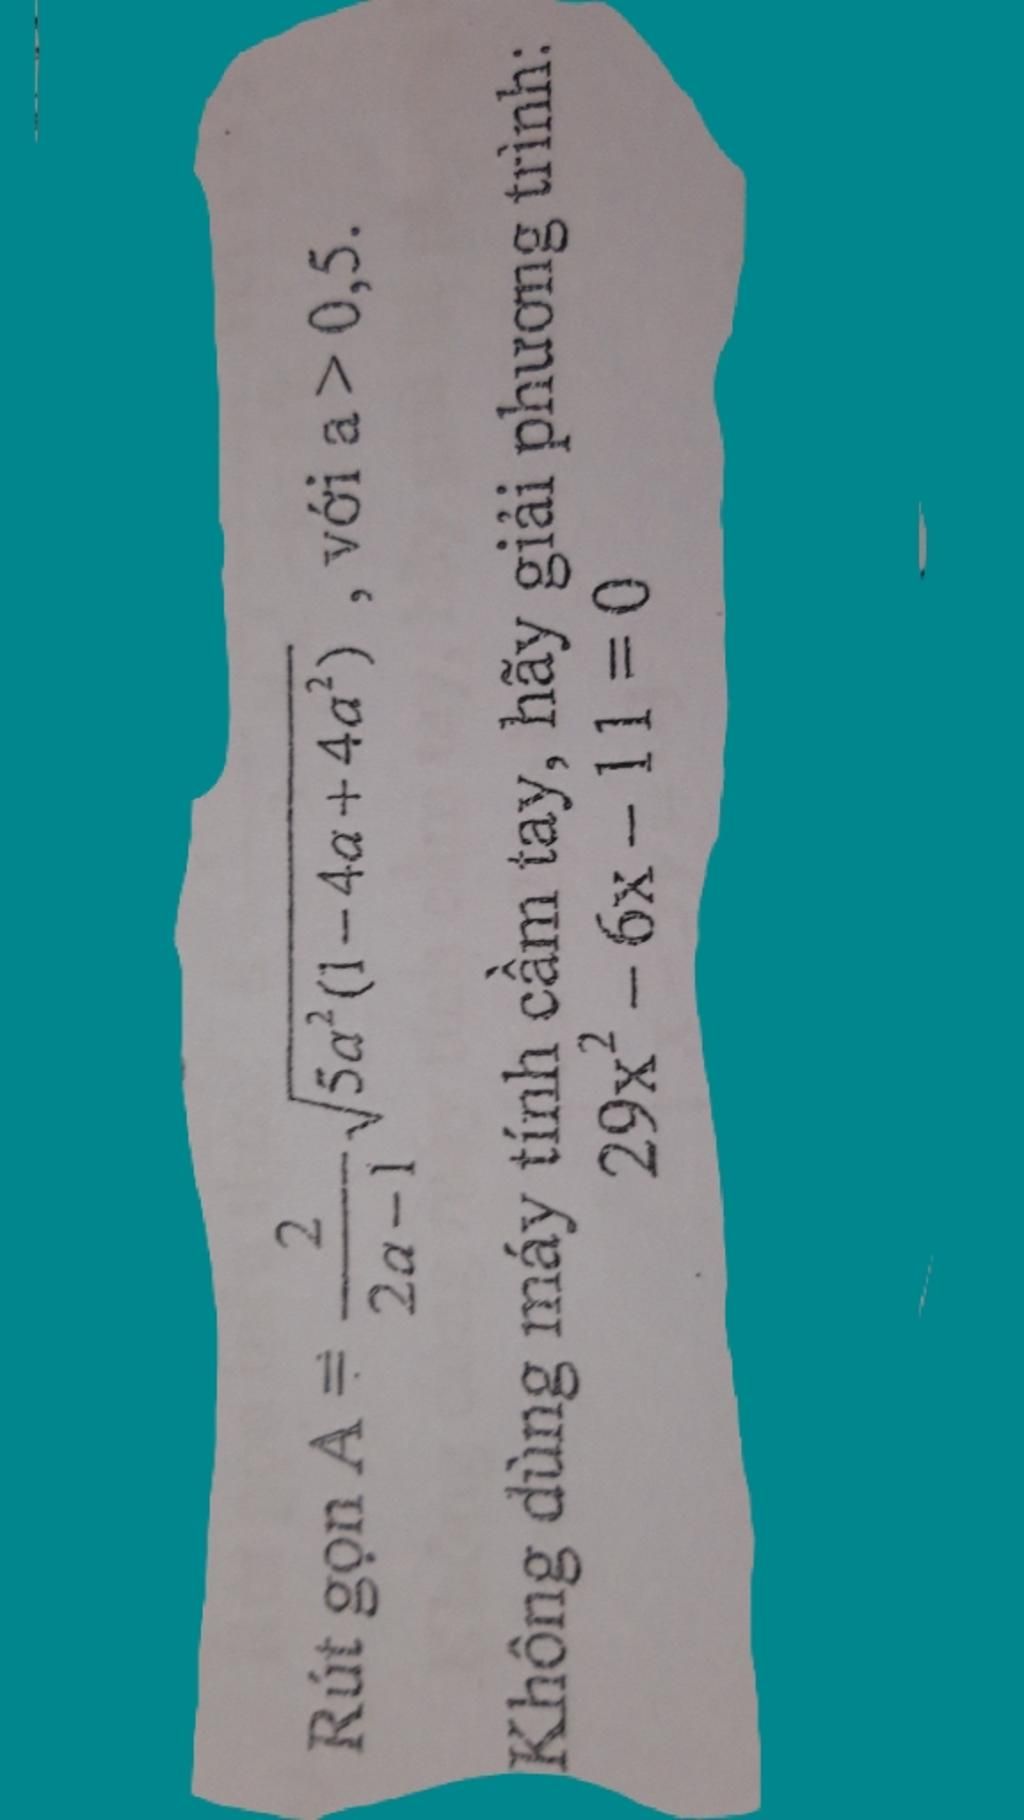 Rút gọn A = \frac{2}{2a-1}\sqrt{5a^2(1-4a+4a^2)} , với a > 0,5.
Không dùng máy tính cầm tay, hãy giải phương trình:
29x² – 6x – 11 = 0